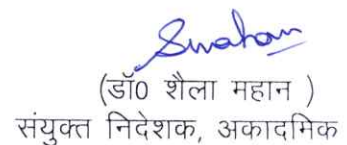 (डॉ0 शैला महान )
संयुक्त निदेशक, अकादमिक